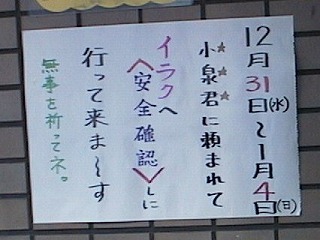 12月31日(水)～1月4日(日)
小泉君に頼まれて
イラクへ
<安全確認>しに
行って来ま～す
無事を祈ってネ。